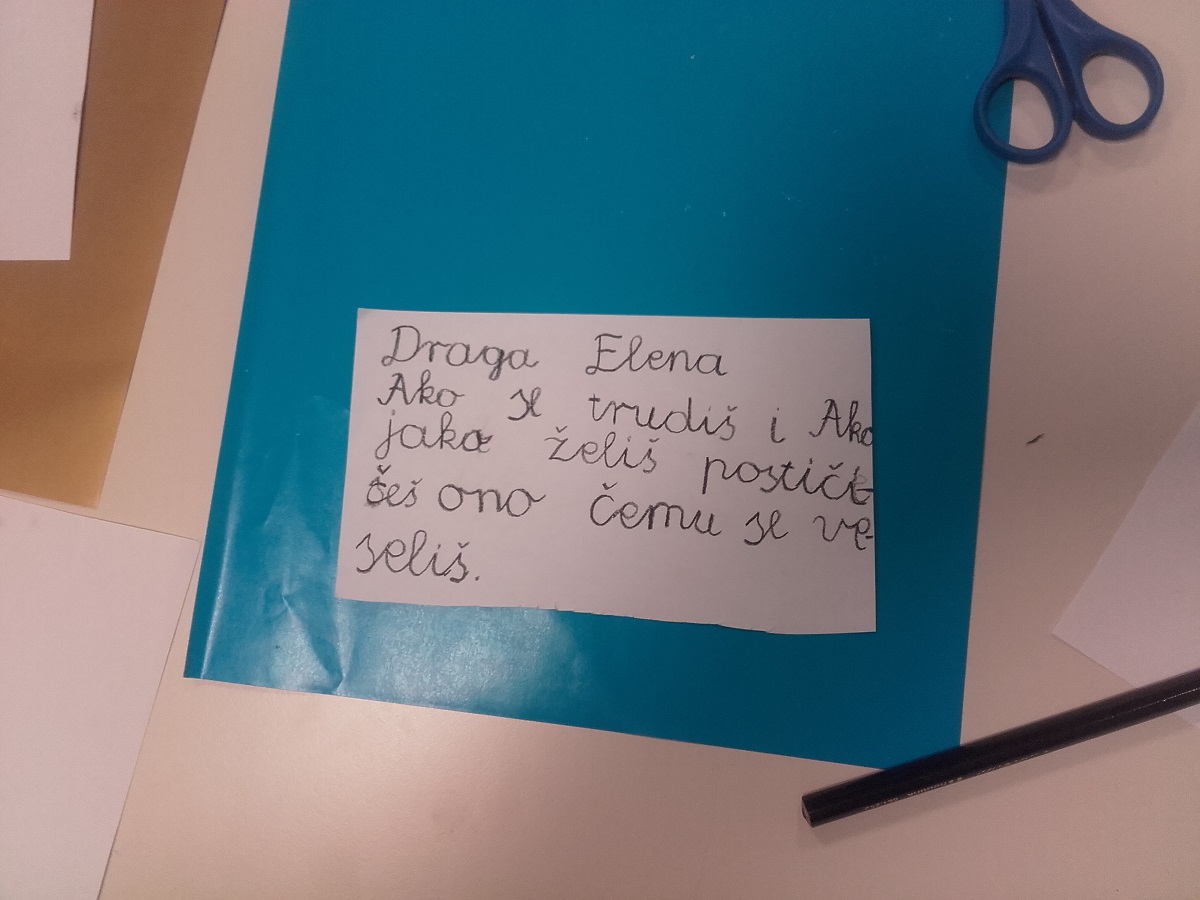 Draga Elena
Ako se trudiš i Ako
jako želiš postiči
češ ono čemu se ve-
seliš.